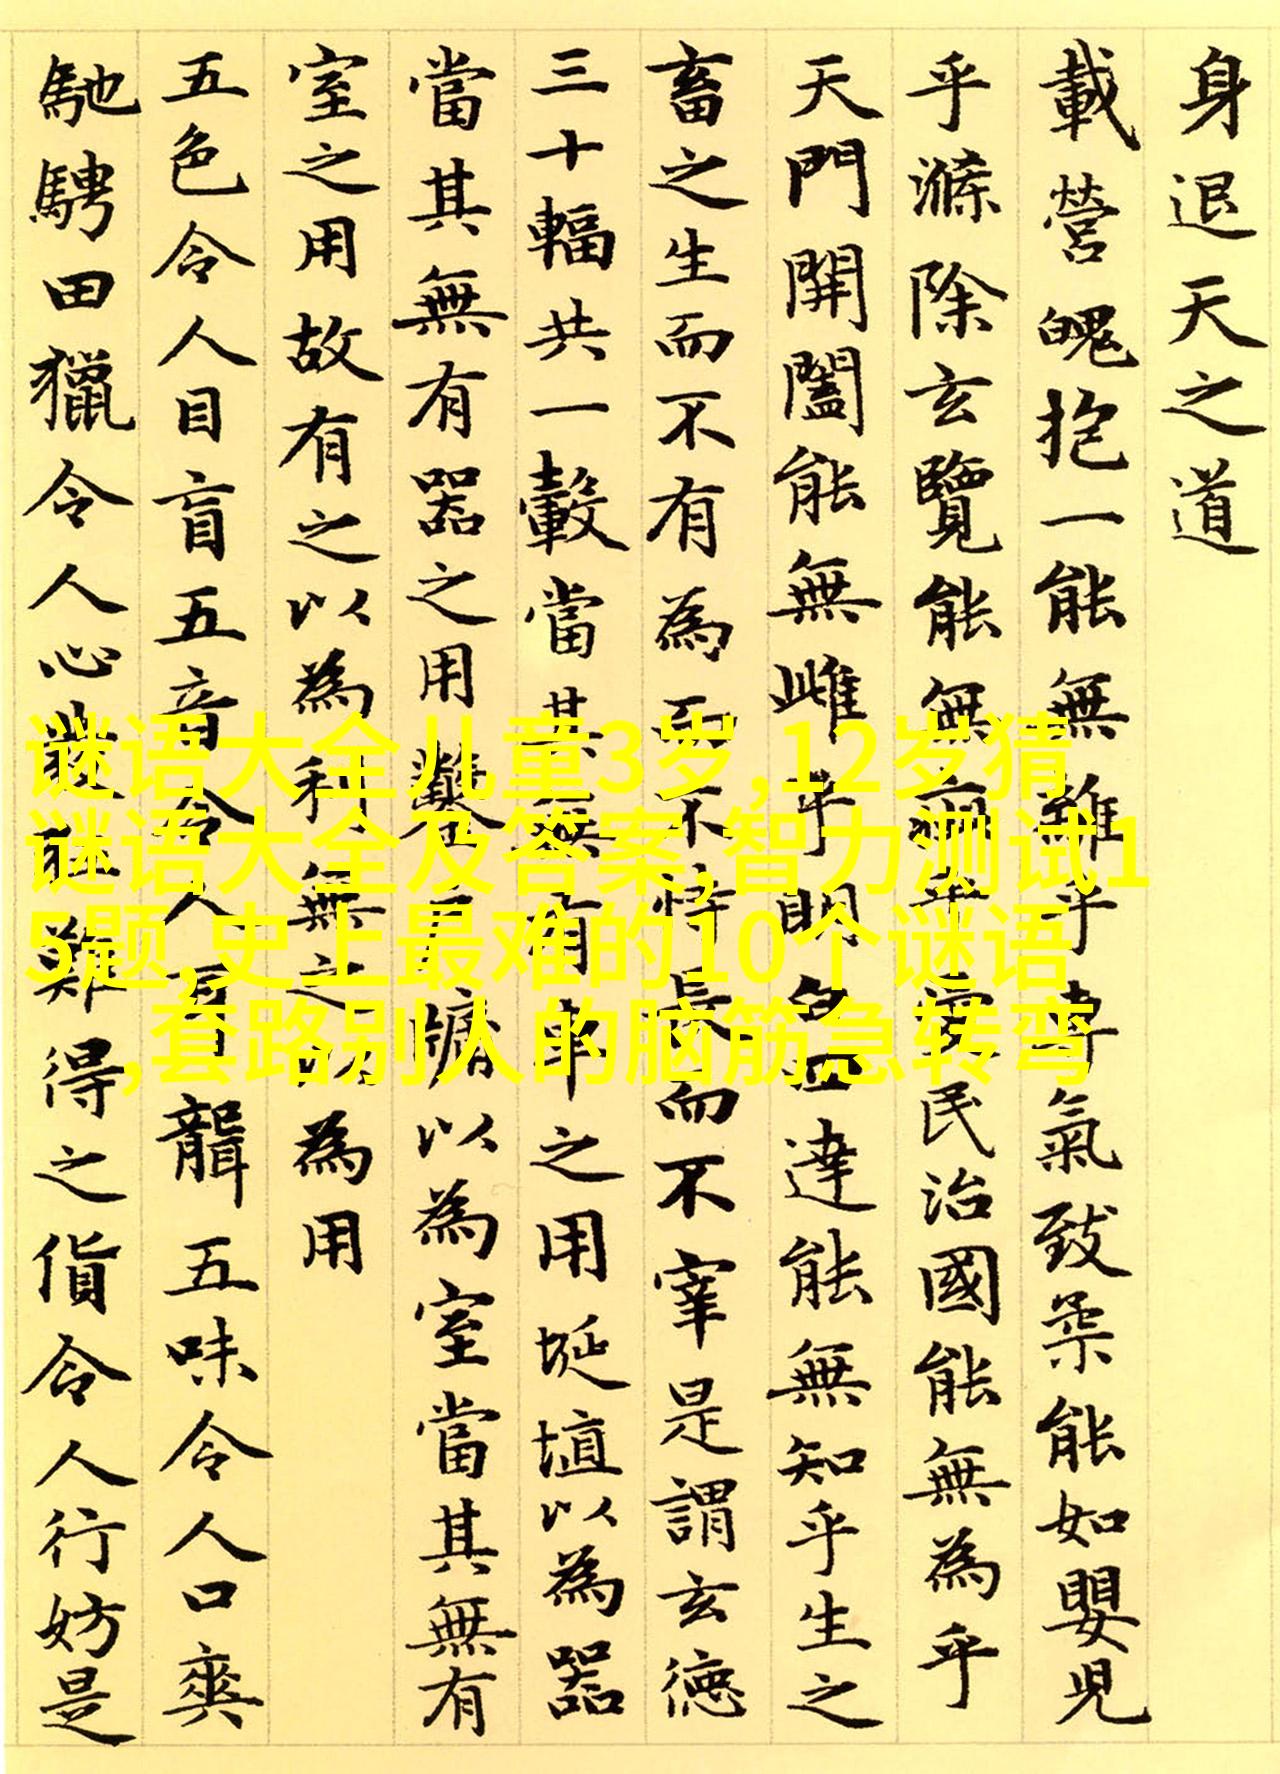 身退天之道
載營魄抱一能無離乎專氣致柔能如嬰兒
乎滌除玄覽能無疵乎愛民治國能無為乎
天門開闔能無雌乎明白四達能無知乎生之
畜之生而不有為而不恃長而不宰是謂玄德
三十輻共一轂當其無有車之用埏埴以為器
當其無有器之用鑿戶牖以為室當其無有
室之用故有之以為利無之以為用
五色令人目盲五音令人耳聾五味令人口爽
馳騁田獵令人心發狂難得之貨令人行妨是
谜语大全儿童3岁,12岁猜
谜语大全及答案,智力测试1
5题,史上最难的10个谜语
,套路别人的脑筋急转弯